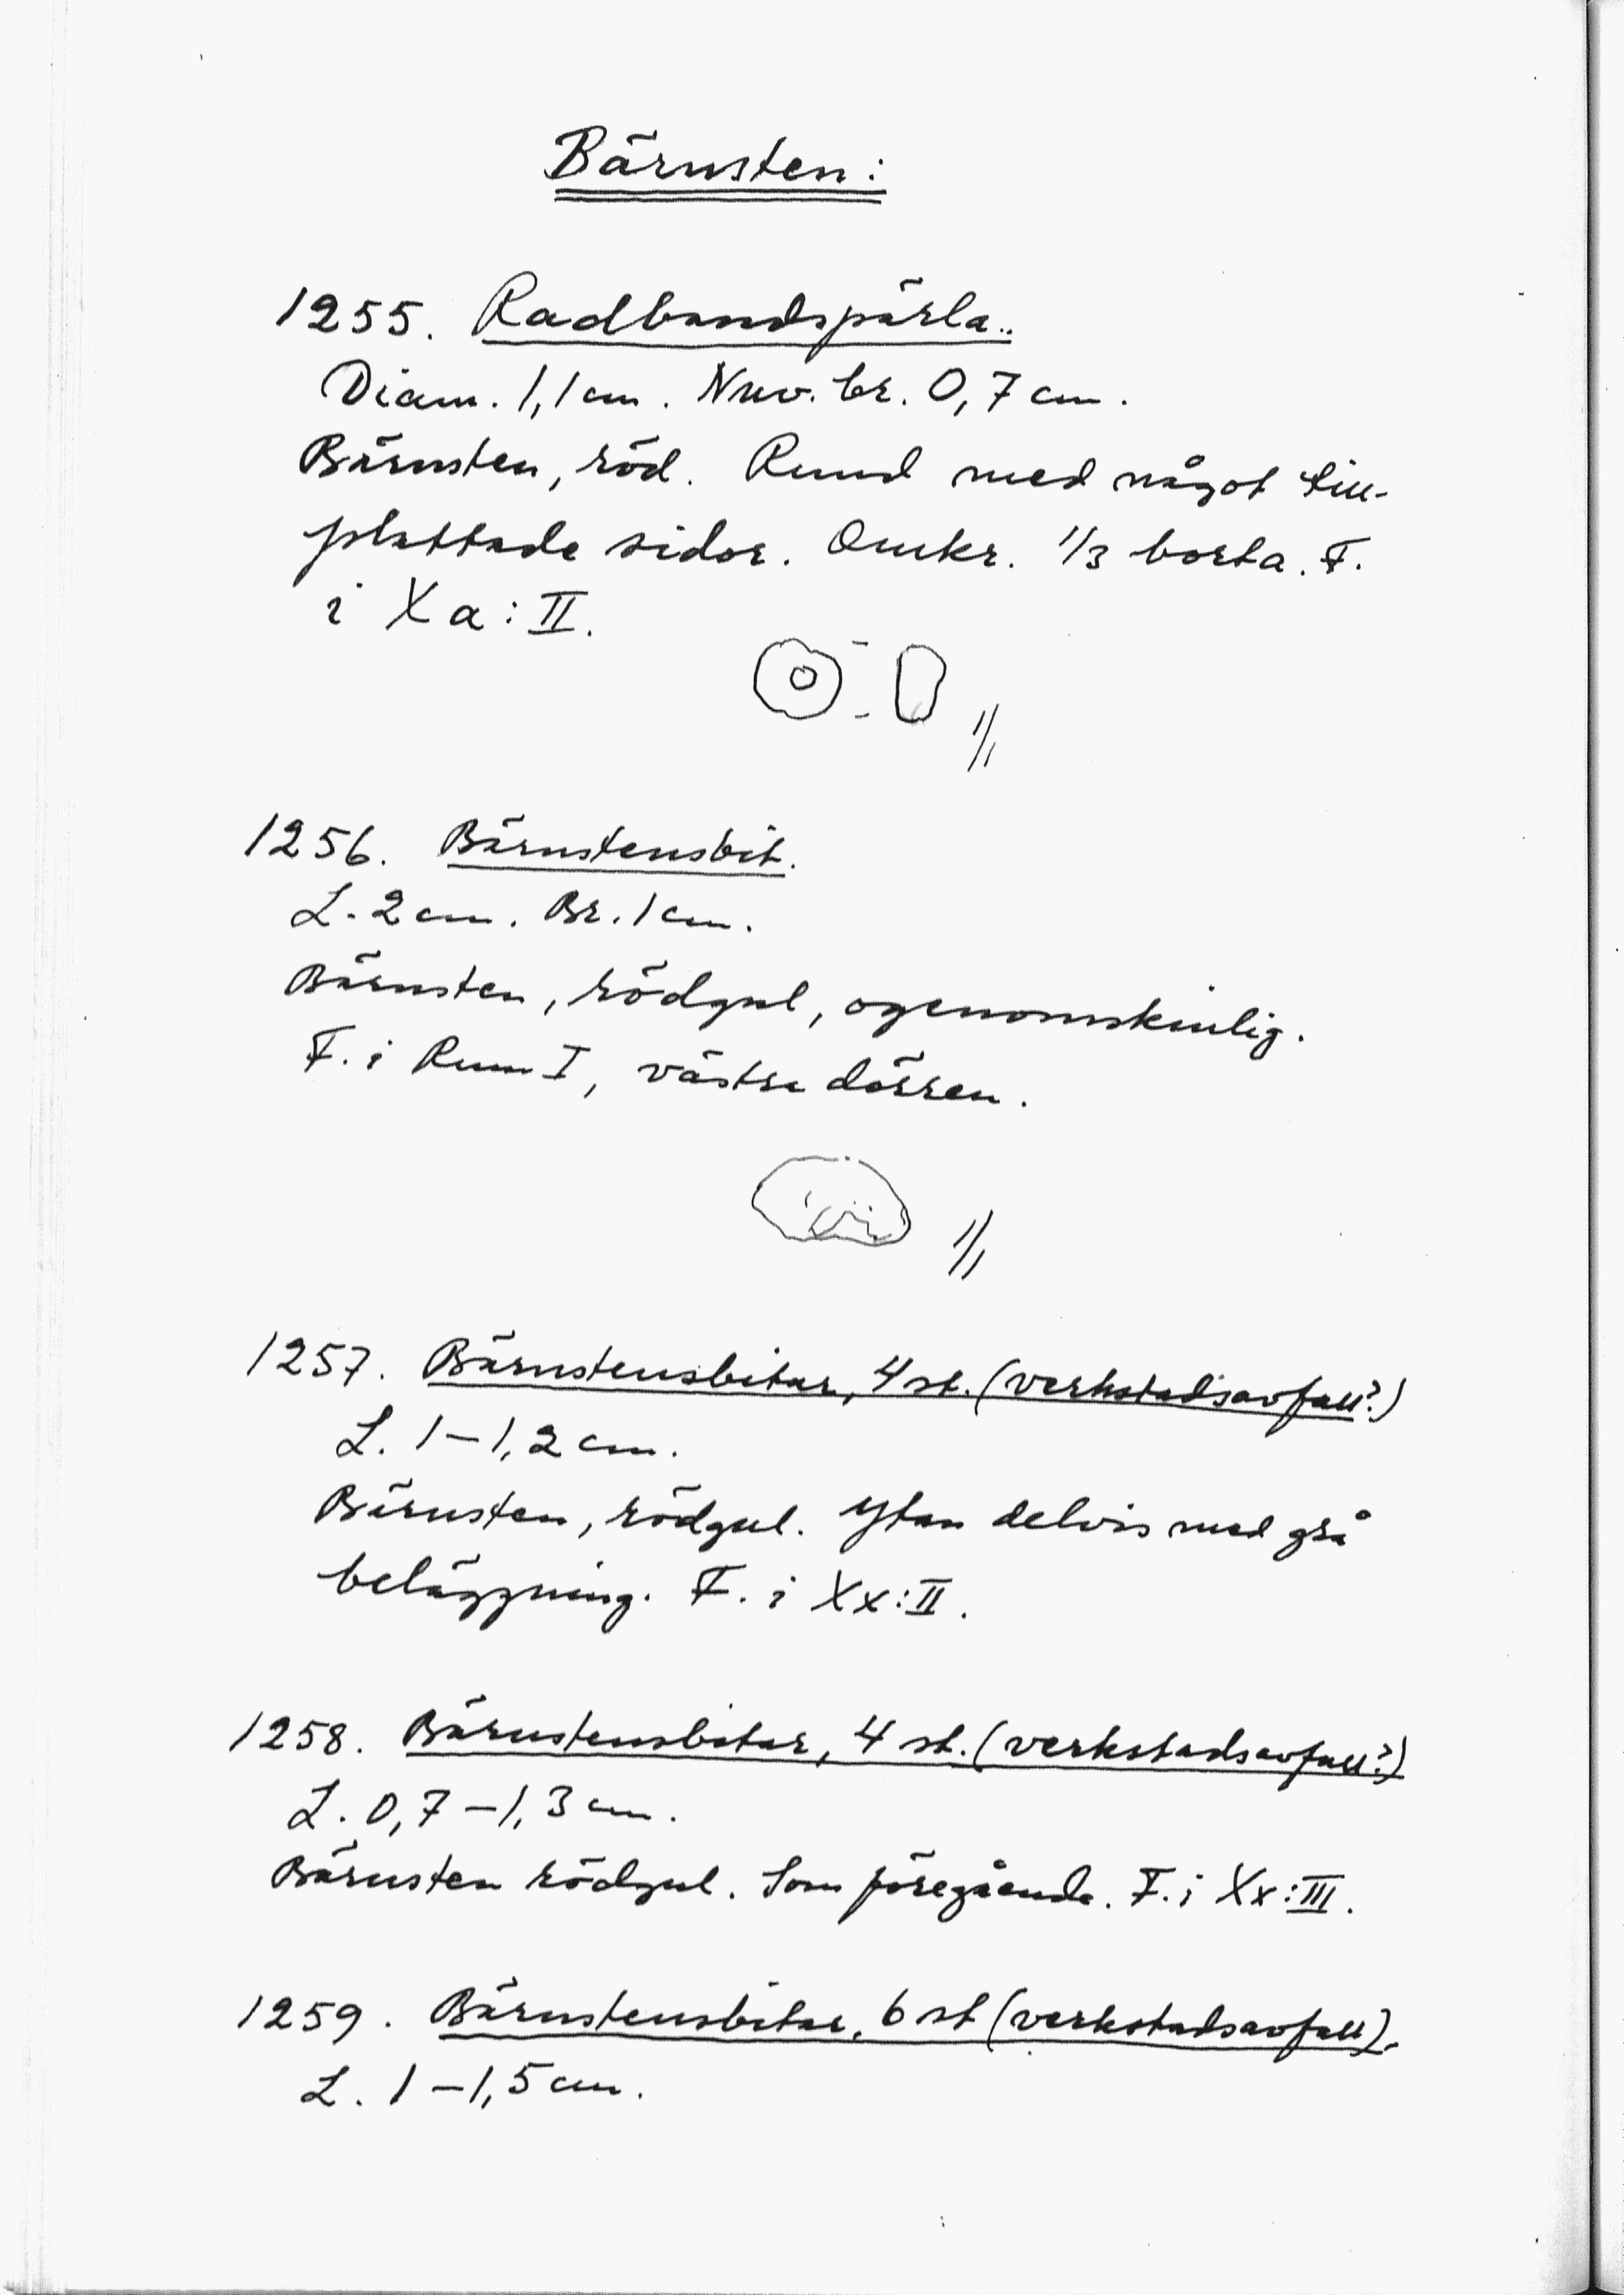 Bärnsten:
1255. Radbandspärla..
Diam. 1,1 cm. Nuv. br. 0,7 cm.
Bärnsten, röd. Rund med något till-
plattade sidor. Omkr. 1/3 borta. F.
i Xa:II.
1/1
1256. Bärnstensbit.
L. 2 cm. Br. 1 cm.
Bärnsten, rödgul, ogenomskinlig.
F. i Rum I, västra dörren.
1/1
1257. Bärnstensbitar, 4 st. (verkstadsavfall?)
L. 1–1,2 cm.
Bärnsten, rödgul. Ytan delvis med grå
beläggning. F. i Xx:II.
1258. Bärnstensbitar, 4 st. (verkstadsavfall?)
L. 0,7–1,3 cm.
Bärnsten rödgul. Som föregående. F. i Xx:III.
1259. Bärnstensbitar, 6 st (verkstadsavfall).
L. 1–1,5 cm.